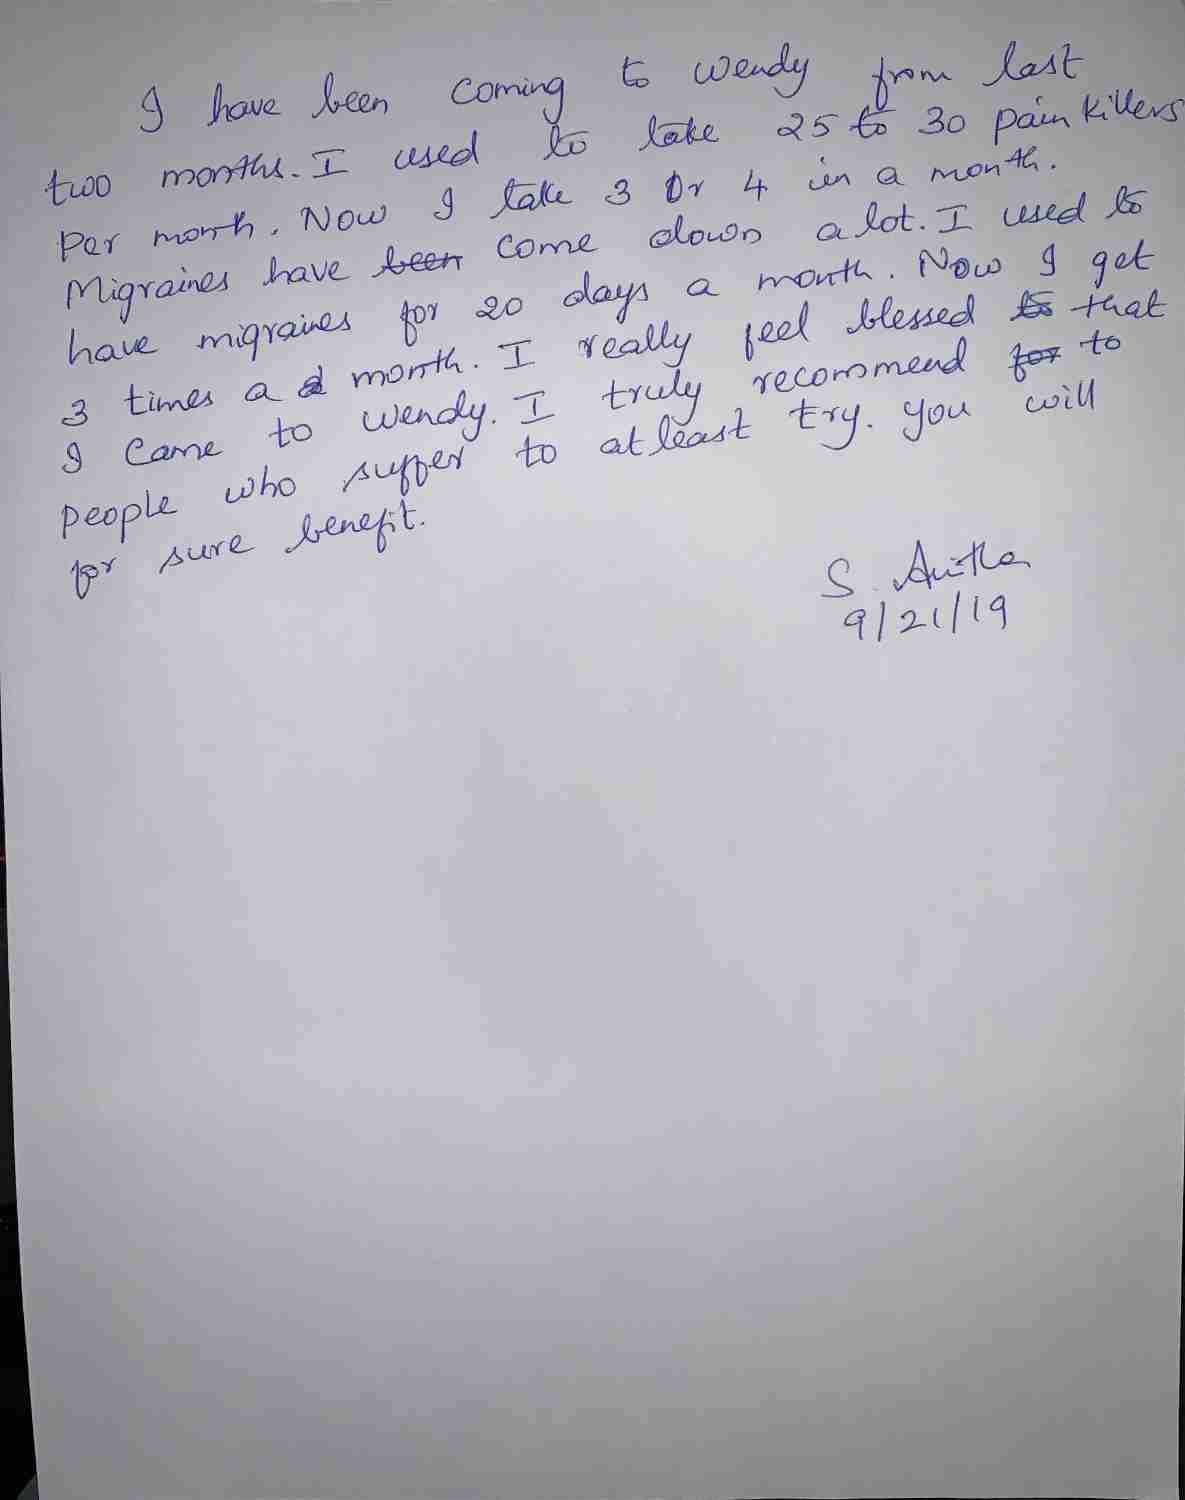 I have been coming to Wendy from last
two months. I used to take 25 to 30 pain killers
Per month. Now I take 3 Or 4 in a month.
Migraines have been come down a lot. I used to
have migraines for 20 days a month. Now I get
3 times a month. I really feel blessed to that
I came to Wendy. I truly recommend for to
people who suffer to atleast try. You will
for sure benefit.
S. Anitha
9/21/19